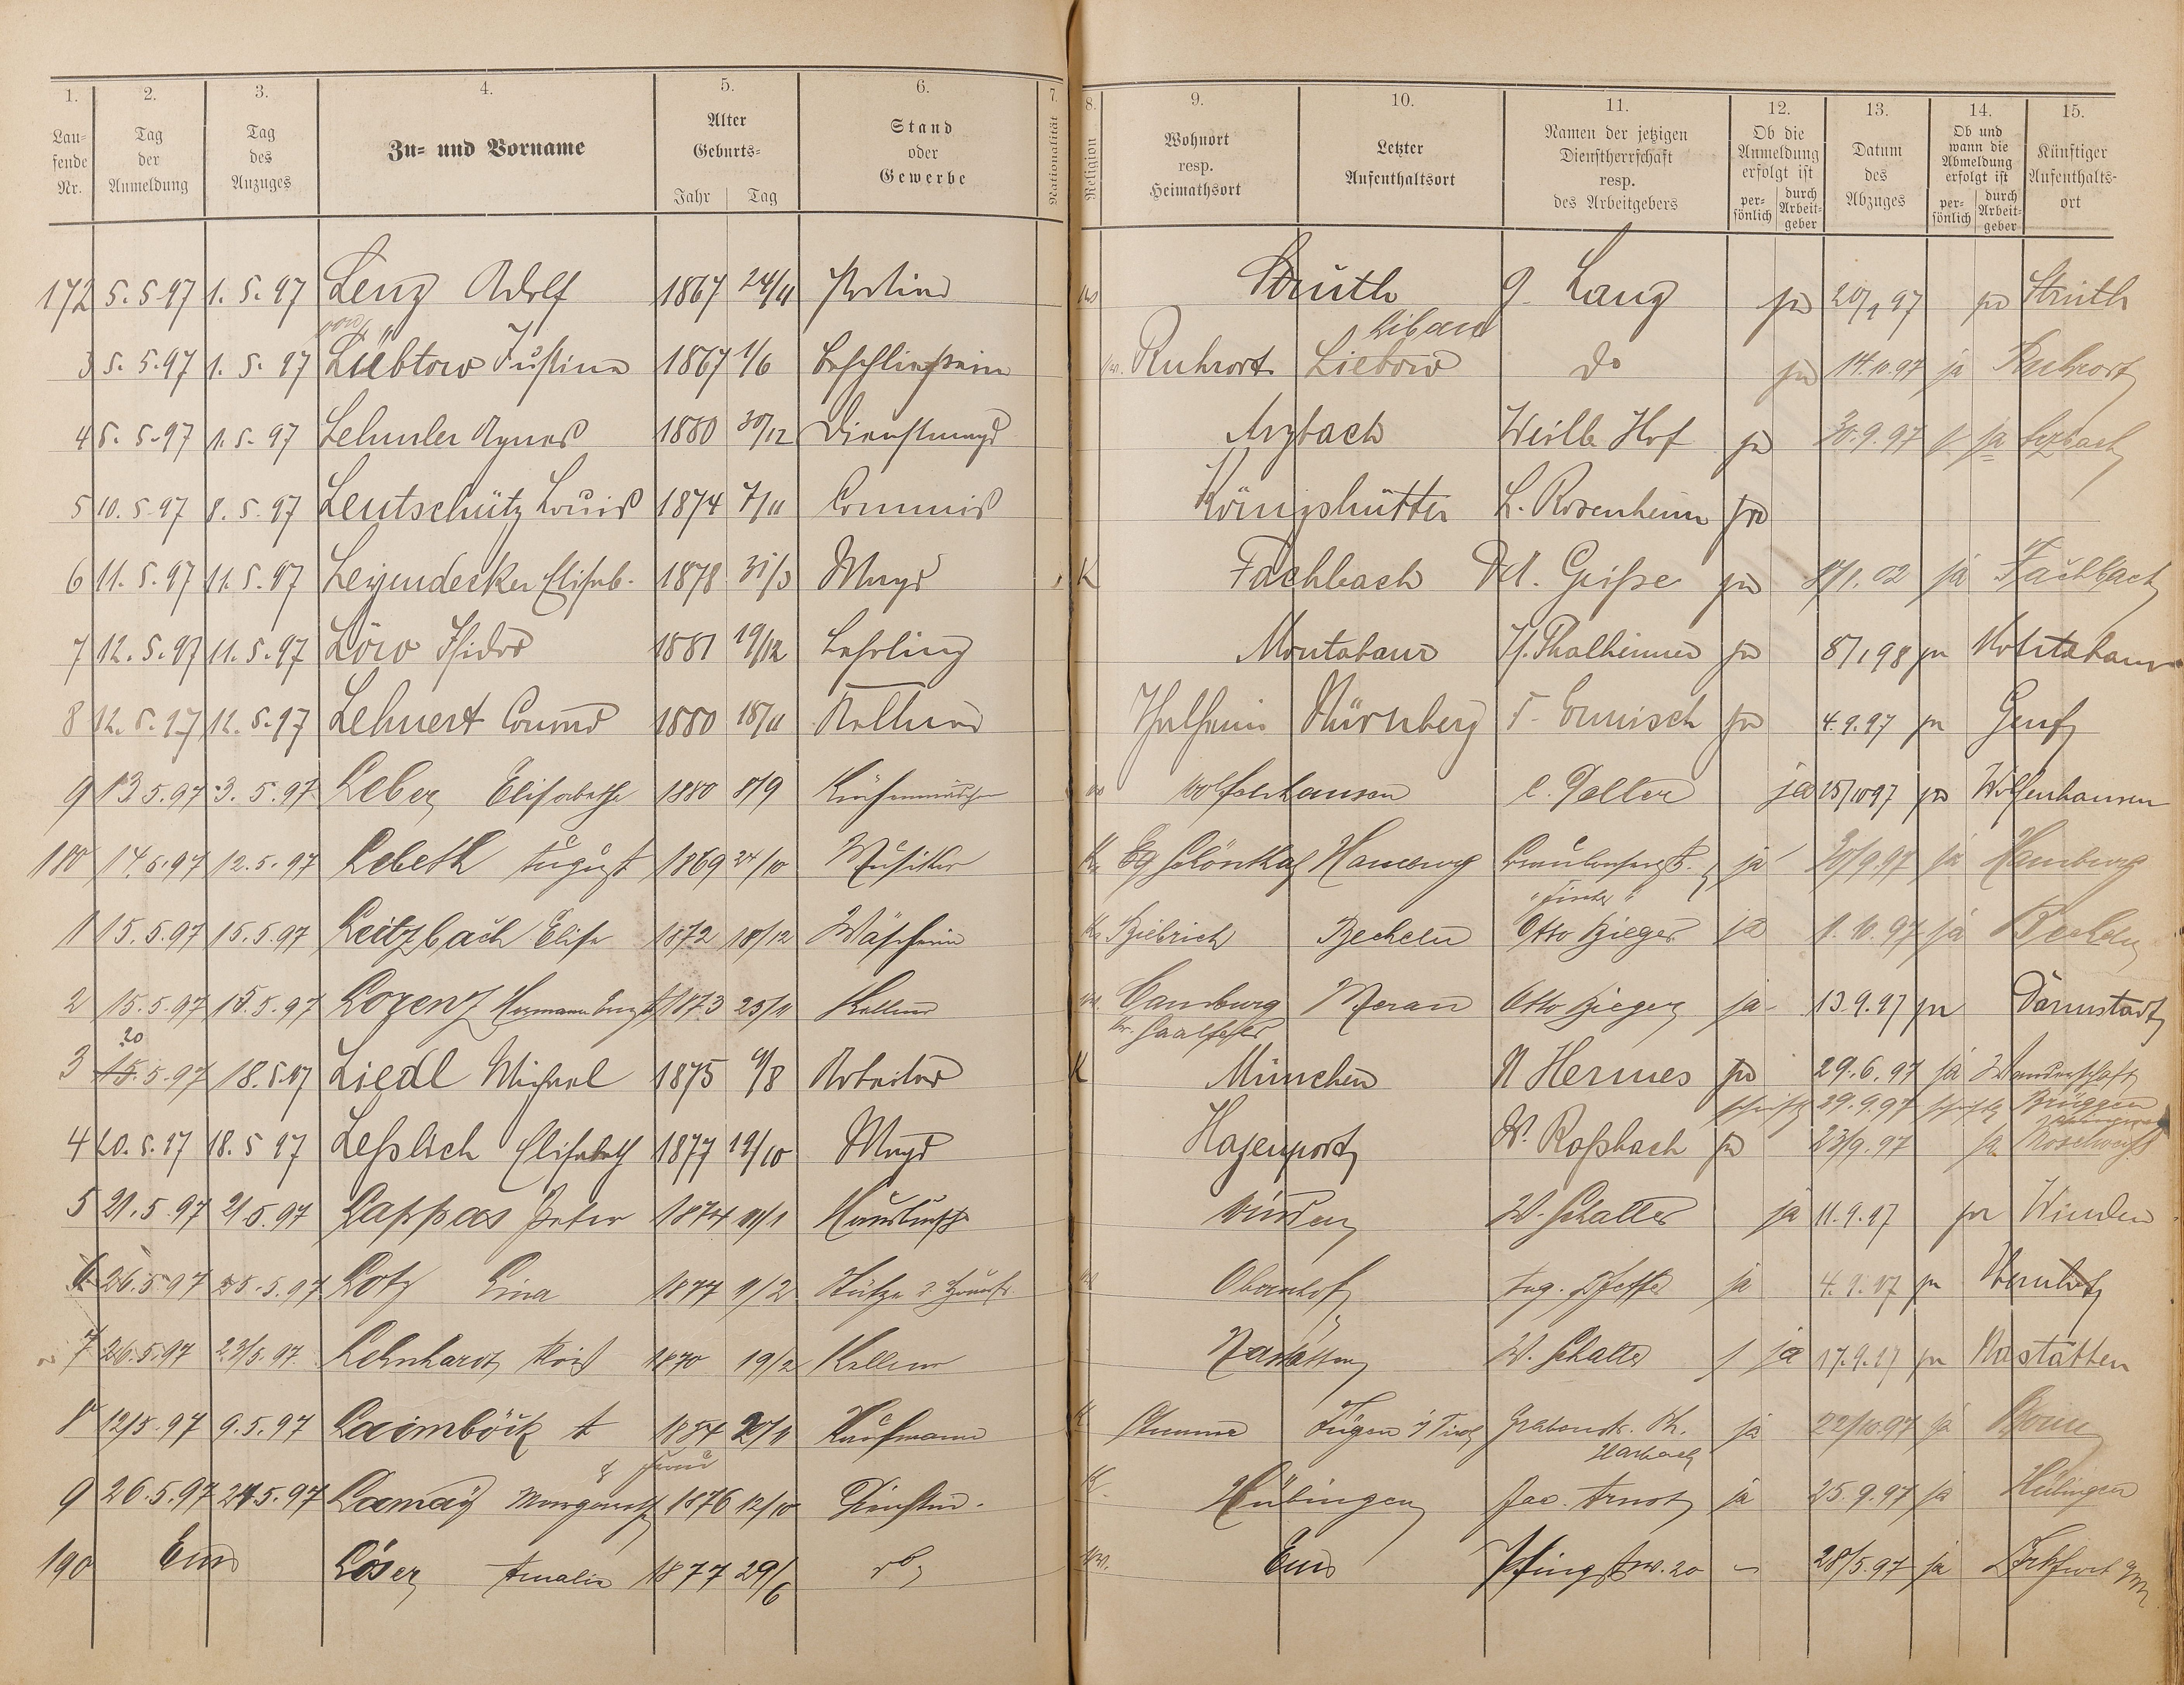 1. 2. 3. 4. 5. 6. 7. 8. 9. 10. 11. 12. 13. 14. 15.
Lau-
fende
Nr.
Tag
der
Anmeldung
Tag
des
Anzuges
Zu- und Vorname
Alter
Geburts-
Jahr Tag
Stand
oder
Gewerbe
Nationalität
Religion
Wohnort
resp.
Heimathsort
Letzter
Aufenthaltsort
Namen der jetzigen
Dienstherrschaft
resp.
des Arbeitgebers
Ob die
Anmeldung
erfolgt ist
per-
sönlich
durch
Arbeit-
geber
Datum
des
Abzuges
Ob und
wann die
Abmeldung
erfolgt ist
per-
sönlich
durch
Arbeit-
geber
Künftiger
Aufenthalts-
ort
172 5.5.97 1.5.97 Lenz Adolf 1867 24/11 Portier Struth G. Lang ja 20/9 97 ja Struth
Liban
3 5.5.97 1.5.97 Lübtow Justine 1867 1/6 Beschließerin Ruhrort Liebow do ja 14.10.97 ja Ruhrort
4 5.5.97 1.5.97 Lehmler Agnes 1880 30/12 Dienstmagd Arzbach Weilb. Hof ja 30.9.97 ja Arzbach
5 10.5.97 8.5.97 Leutschütz Louis 1874 7/11 Commis Königshütte L. Rosenheim ja
6 11.5.97 11.5.97 Leyendecker Elisab. 1878 31/3 Magd K Fachbach Geiße ja 8/1.02 ja Fachbach
7 12.5.97 11.5.97 Löw Isidor 1881 19/12 Lehrling Montabaur H. Thalheimer ja 8/1 98 ja Montabaur
8 12.5.97 12.5.97 Lehnert Conrad 1880 18/11 Kellner Nürnberg ja 4.9.97 ja Genf
9 13.5.97 3.5.97 Leber Elisabethe 1880 8/9 Küchenmädchen Wolfenhausen ja 15/10 97 ja Wolfenhausen
180 14.5.97 12.5.97 Lebeth August 1869 24/10 Musiker Hamburg ja 30/9.97 ja Hamburg
1 15.5.97 15.5.97 Leitzbach Elise 1872 18/12 Wäscherin Biebrich Becheln Otto Bieger ja 1.10.97 ja Becheln
2 15.5.97 15.5.97 Lorenz Hermann Ernst 1873 25/11 Kellner Camburg Meran Otto Bieger ja 13.9.97 ja Darmstadt
Kr. Saalfeld
20
3 15.5.97 18.5.97 Liedl Michael 1875 9/8 Arbeiter K München N Hermes ja 29.6.97 ja Wanderschaft
29.9.97 Brüggen
4 20.5.97 18.5.97 Leßlich Elisabeth 1877 19/10 Magd Hazenport W. Roßbach ja 23/9.97 ja
5 21.5.97 21.5.97 Lappas Peter 1874 Hausbursche Winden W. Schatter ja 11.9.97 ja Winden
6 26.5.97 25.5.97 Lotz Lina 1877 9/2 Stütze d. Hausfr. Obernhof Aug. Pfeffer ja 4.9.97 ja Obernhof
7 26.5.97 23/5.97 Lehnhardt Alois 1870 19/2 Kellner Nastätten W. Schatter ja 17.9.97 ja Nastätten
8 12/5.97 9.5.97 Laimböck A 1854 20/11 Kaufmann K Fügen i/ Tirol Grabenstr. ja 22/10.97 ja Bonn
& Frau Harbach
9 26.5.97 24.5.97 Lamay Margareth 1876 12/10 Dienstm. K. Hübingen Jac. Arnst ja 25.9.97 ja Hübingen
190 Ems Löser Amalie 1877 29/6 Ems Pfingstw. 20 – 28/5.97 ja Frkfurt a/M